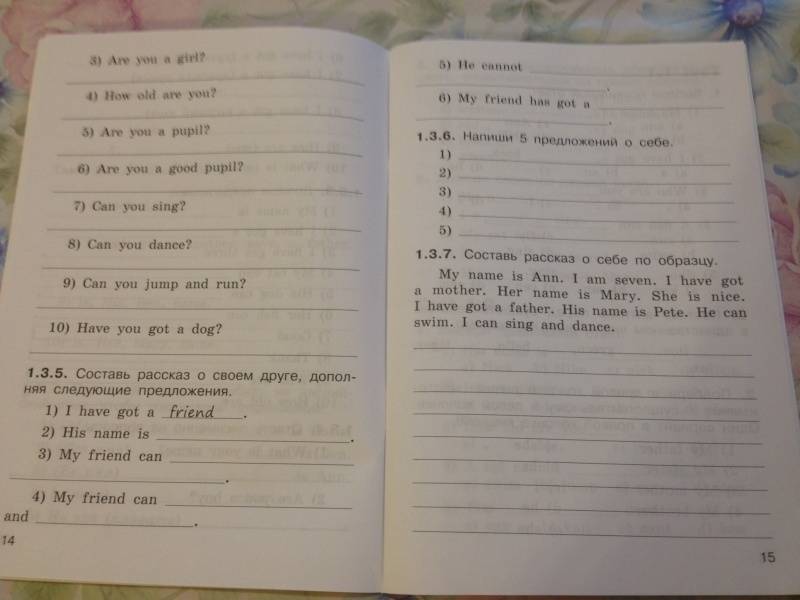 3) Are you a girl?
4) How old are you?
5) Are you a pupil?
6) Are you a good pupil?
7) Can you sing?
8) Can you dance?
9) Can you jump and run?
10) Have you got a dog?
1.3.5. Составь рассказ о своем друге, допол-
няя следующие предложения.
1) I have got a friend.
2) His name is .
3) My friend can
.
4) My friend can
and .
14
5) He cannot
.
6) My friend has got a
.
1.3.6. Напиши 5 предложений о себе.
1)
2)
3)
4)
5)
1.3.7. Составь рассказ о себе по образцу.
My name is Ann. I am seven. I have got
a mother. Her name is Mary. She is nice.
I have got a father. His name is Pete. He can
swim. I can sing and dance.
15